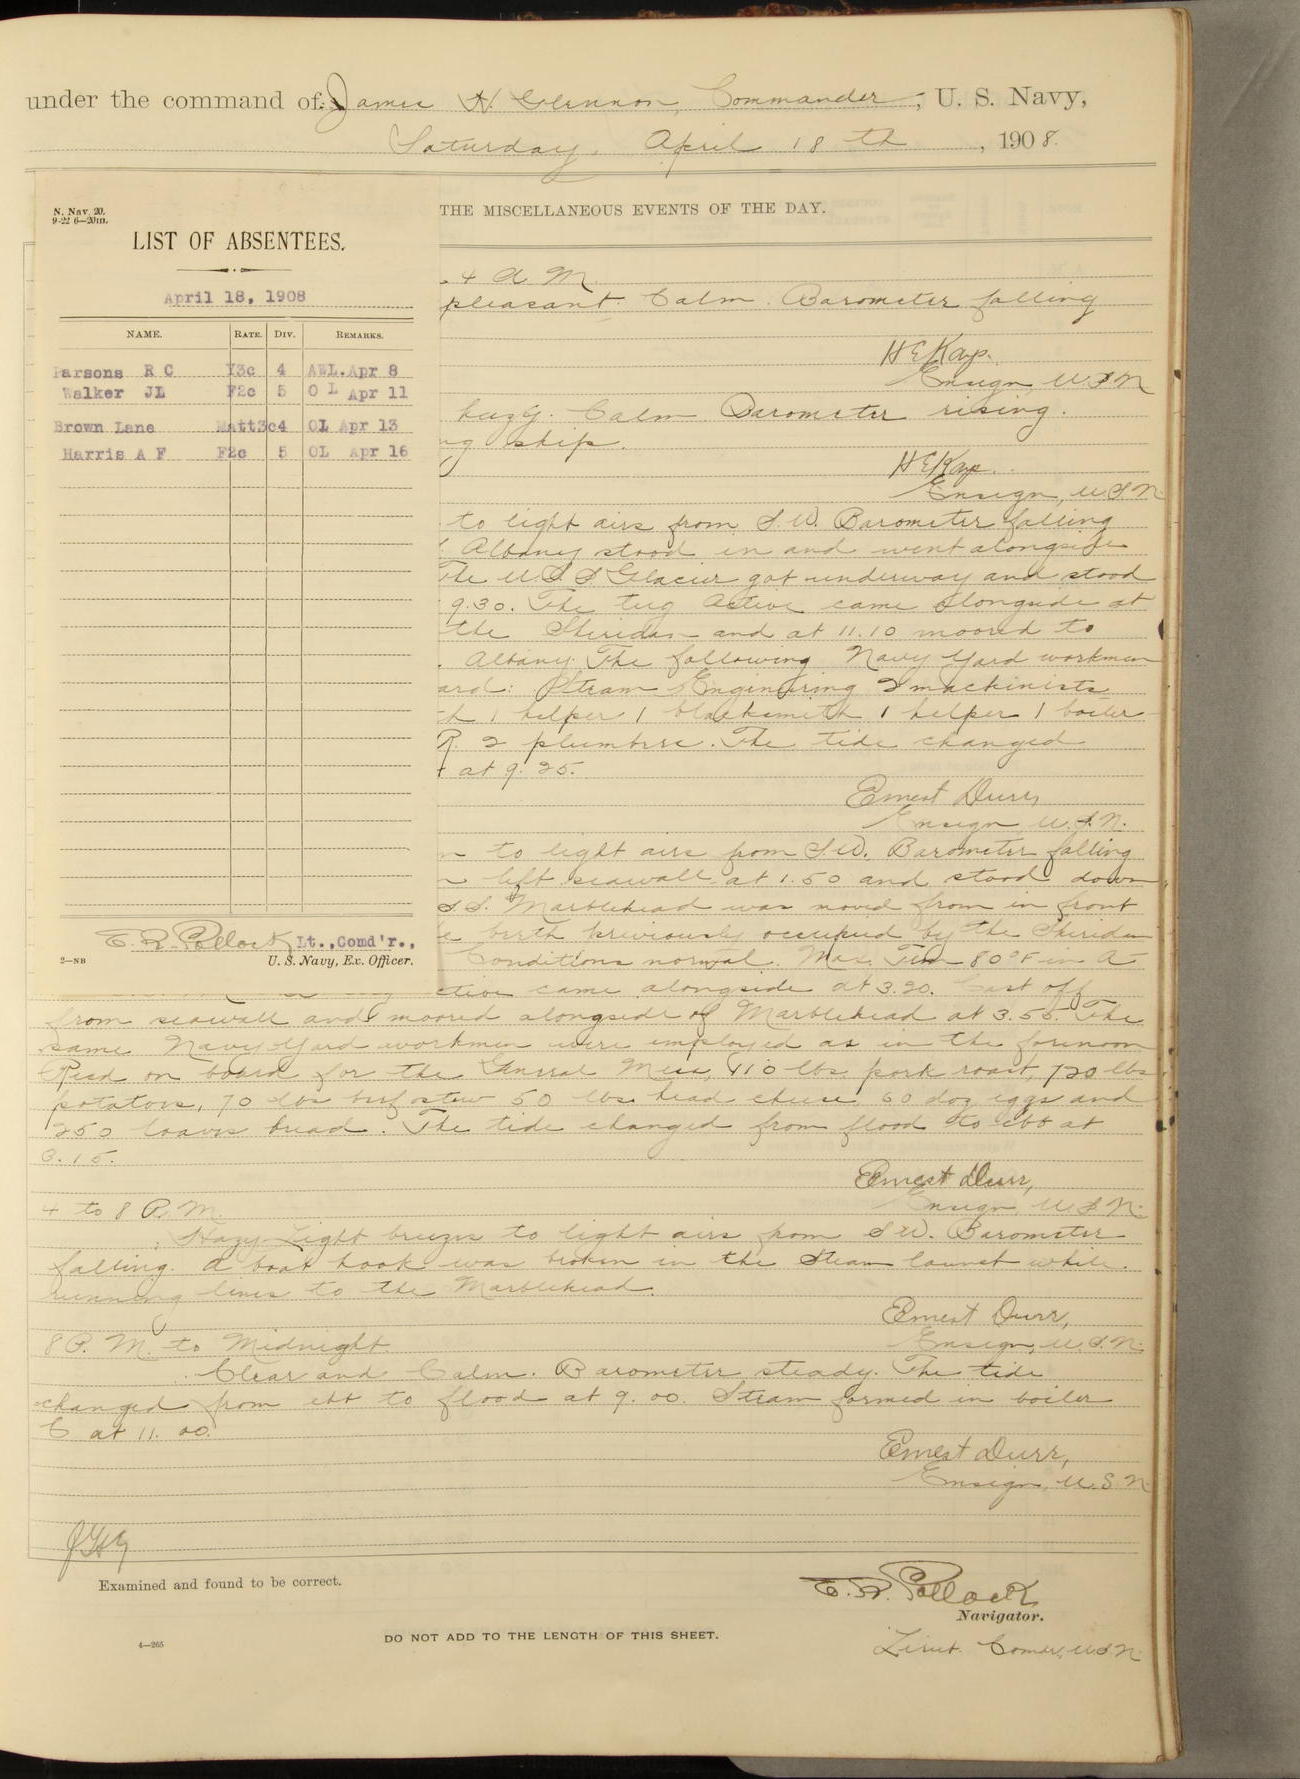 under the command of James H. Glennon, Commander, U. S. Navy,
Saturday, April 18th, 1908.
N. Nav. 20.
9-22 6—20m.
LIST OF ABSENTEES.
April 18, 1908
NAME. RATE. DIV. REMARKS.
Parsons R C Y3c 4 AWL. Apr 8
Walker JL F2c 5 O L Apr 11
Brown Lane Matt3c4 OL Apr 13
Harris A F F2c 5 OL Apr 16
E. R. Pollock Lt., Comd'r.,
2—NB U. S. Navy, Ex. Officer.
THE MISCELLANEOUS EVENTS OF THE DAY.
4 A M
pleasant. Calm. Barometer falling
H E Kays.
Ensign, U.S.N
hazy. Calm Barometer rising.
ng ship.
H E Kays
Ensign, U.S.N.
to light airs from S.W. Barometer falling
Albany stood in and went alongside
The U.S.S Glacier got underway and stood
9.30. The tug Active came alongside at
the Sheridan and at 11.10 moored to
Albany. The following Navy Yard workmen
ard: Steam Engineering 2 machinists
th 1 helper 1 blacksmith 1 helper 1 boiler
R. 2 plumbers. The tide changed
at 9.25.
Ernest Durr,
Ensign U.S.N.
to light airs from S.W. Barometer falling
left seawall at 1.50 and stood down
S.S. Marblehead was moved from in front
berth previously occupied by the Sheridan
Conditions normal. Max. Tem 80°F in A
ctive came alongside at 3.20. Cast off
from seawall and moored alongside of Marblehead at 3.55. The
same Navy Yard workmen were employed as in the forenoon
Recd on board for the General Mess, 110 lbs pork roast, 720 lbs
potatoes, 70 lbs beef stew 50 lbs head cheese 60 doz eggs and
250 loaves bread. The tide changed from flood to ebb at
3.15.
Ernest Durr,
Ensign U.S.N.
4 to 8 P.M.
Hazy Light breezes to light airs from S.W. Barometer
falling. A boat hook was broken in the steam launch while
running lines to the Marblehead.
Ernest Durr,
Ensign, U.S.N.
8 P.M. to Midnight
Clear and Calm. Barometer steady. The tide
changed from ebb to flood at 9.00. Steam formed in boiler
C at 11.00.
Ernest Durr,
Ensign, U.S.N.
Examined and found to be correct.
E. R. Pollock
Navigator.
4—265
DO NOT ADD TO THE LENGTH OF THIS SHEET.
Lieut. Comdr, U.S.N.